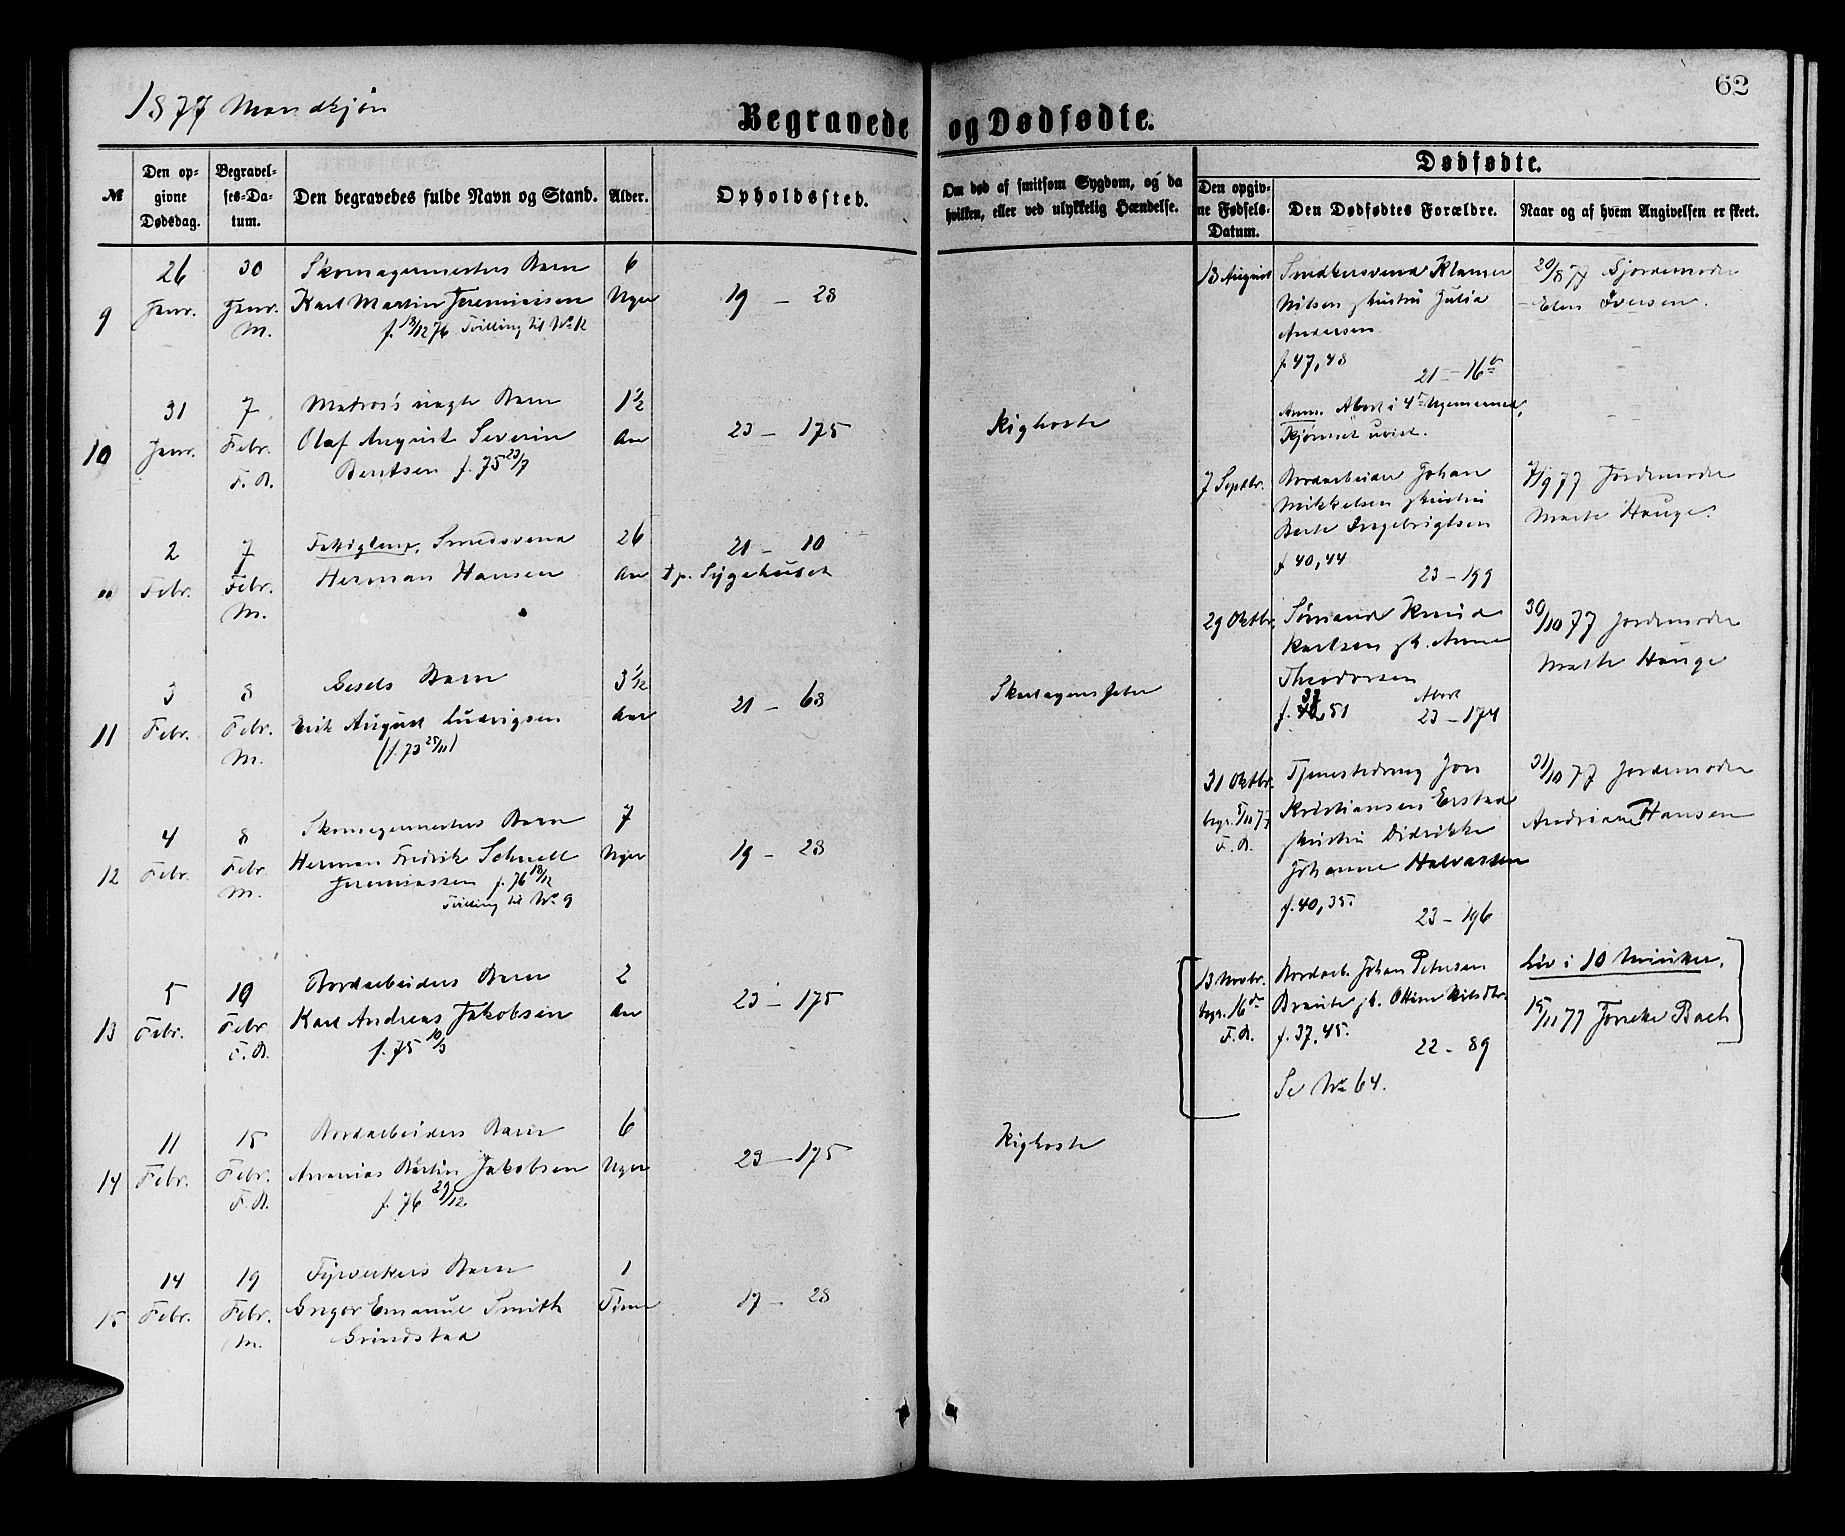 62
1877 Mandkjøn
Begravede og Dødfødte.
№
Den op-
givne
Dødsdag.
Begravel-
ses-Da-
tum.
Den begravedes fulde Navn og Stand.
Alder.
Opholdssted.
Om død af smitsom Sygdom, og da
hvilken, eller ved ulykkelig Hændelse.
Dødfødte.
Den opgiv-
ne Fødsels-
Datum.
Den Dødfødtes Forældre.
Naar og af hvem Angivelsen er skeet.
26 30 Skomagermesters Barn 6
9 Janr. Janr. Karl Martin Jeremiesen Uger 19 — 28
M. f. 18/12 76 Tvilling til No 12
31 7 Matros's uægte Barn 1 1/2
10 Janr. Febr. Olaf August Severin Aar 23 — 175 Kighoste
F.A. Bentsen f. 75 23/7
2 7 Fattiglem, Smedsvend 26 21 — 10
Febr. Febr. Herman Hansen Aar Sygehuset
M.
3 8 Gesels Barn 3 1/12
11 Febr. Febr. Erik August Ludvigsen Aar 21 — 68 Skarlagensfeber
M. (f. 73 25/11)
4 8 Skomagermesters Barn 7
12 Febr. Febr. Herman Fredrik Schnell Uger 19 — 28
M. Jeremiassen f. 76 18/12
Tvilling til No 9
5 10 Bordarbeiders Barn 2
13 Febr. Febr. Karl Andreas Jakobsen Aar 23 — 175
F.A. f. 75 10/3
11 15 Bordarbeiders Barn 6
14 Febr. Febr. Ananias Bertin Jakobsen Uger 23 — 175 Kighoste
F.A. f. 76 29/12
14 19 Fyrverkers Barn 1
15 Febr. Febr. Gregor Emanuel Smith Time 17 — 28
M. Grindstad
18 August Smedkersvend Klamer 20/8 77 Gjordemoder
Nilsen g Hustru Julia Elen Iversen.
Andersen
f. 47, 48
21 — 16b
Anm. Abort i 4de Ugemaaned,
Kjønnet uvist.
7 Septbr. Bordarbeider Johan 7/9 77 Jordemoder
Mikkelsen g Hustru Marte Hauge.
Berte Ingebrigtsen
f. 40, 44
23 — 199
29 Oktbr. Sømand Knud 30/10 77 Jordemoder
Karlsen g H. Anne Marte Hauge
Theodorsen
f. 37, 51 Abort
23 — 174
31 Oktbr. Tjenestedreng Jon 31/10 77 Jordemoder
begr. 5/11 77 Kristiansen Erstad Andriane Hansen
F.A. g Hustru Didrikke
Johanne Halvarsen
f. 40, 35.
23 — 196
13 Novbr. Bordarb. Johan Petersen Liv i 10 Minuter.
begr. 16de Braute g H. Ottine Nilsdtr. 15/11 77 Frøken Bach
F.A. f. 37, 45.
22 — 89
Se No 64.